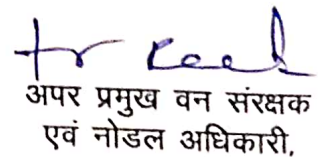 अपर प्रमुख वन संरक्षक
एवं नोडल अधिकारी,